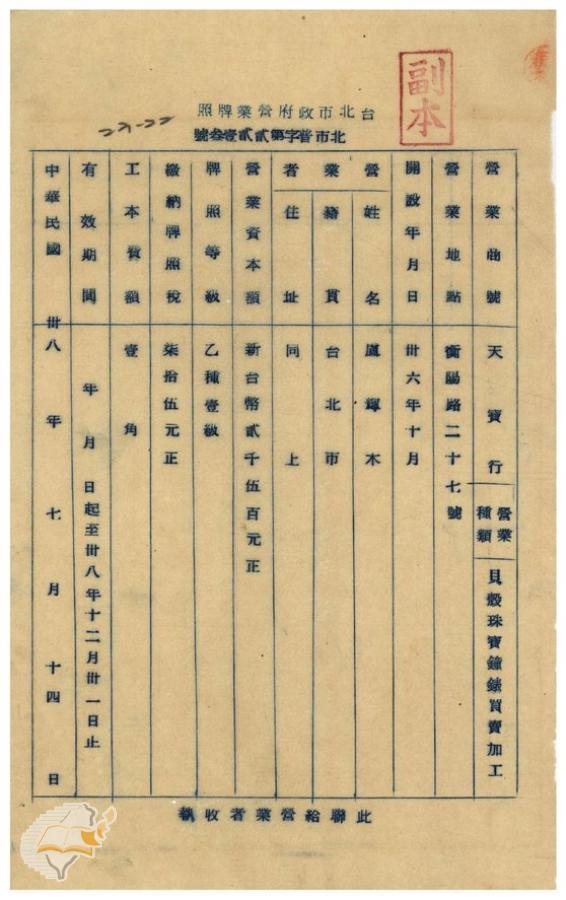 副本
台北市政府營業牌照
北市營字第貳貳壹叁號
27-22
營業商號 天寶行 營業種類 貝殼珠寶鐘錶買賣加工
營業地點 衡陽路二十七號
開設年月日 卅六年十月
營業者 姓名 盧輝木
籍貫 台北市
住址 同上
營業資本額 新台幣貳千伍百元正
牌照等級 乙種壹級
繳納牌照稅 柒拾伍元正
工本費額 壹角
有效期間 年月日起至卅八年十二月卅一日止
中華民國卅八年七月十四日
此聯給營業者收執